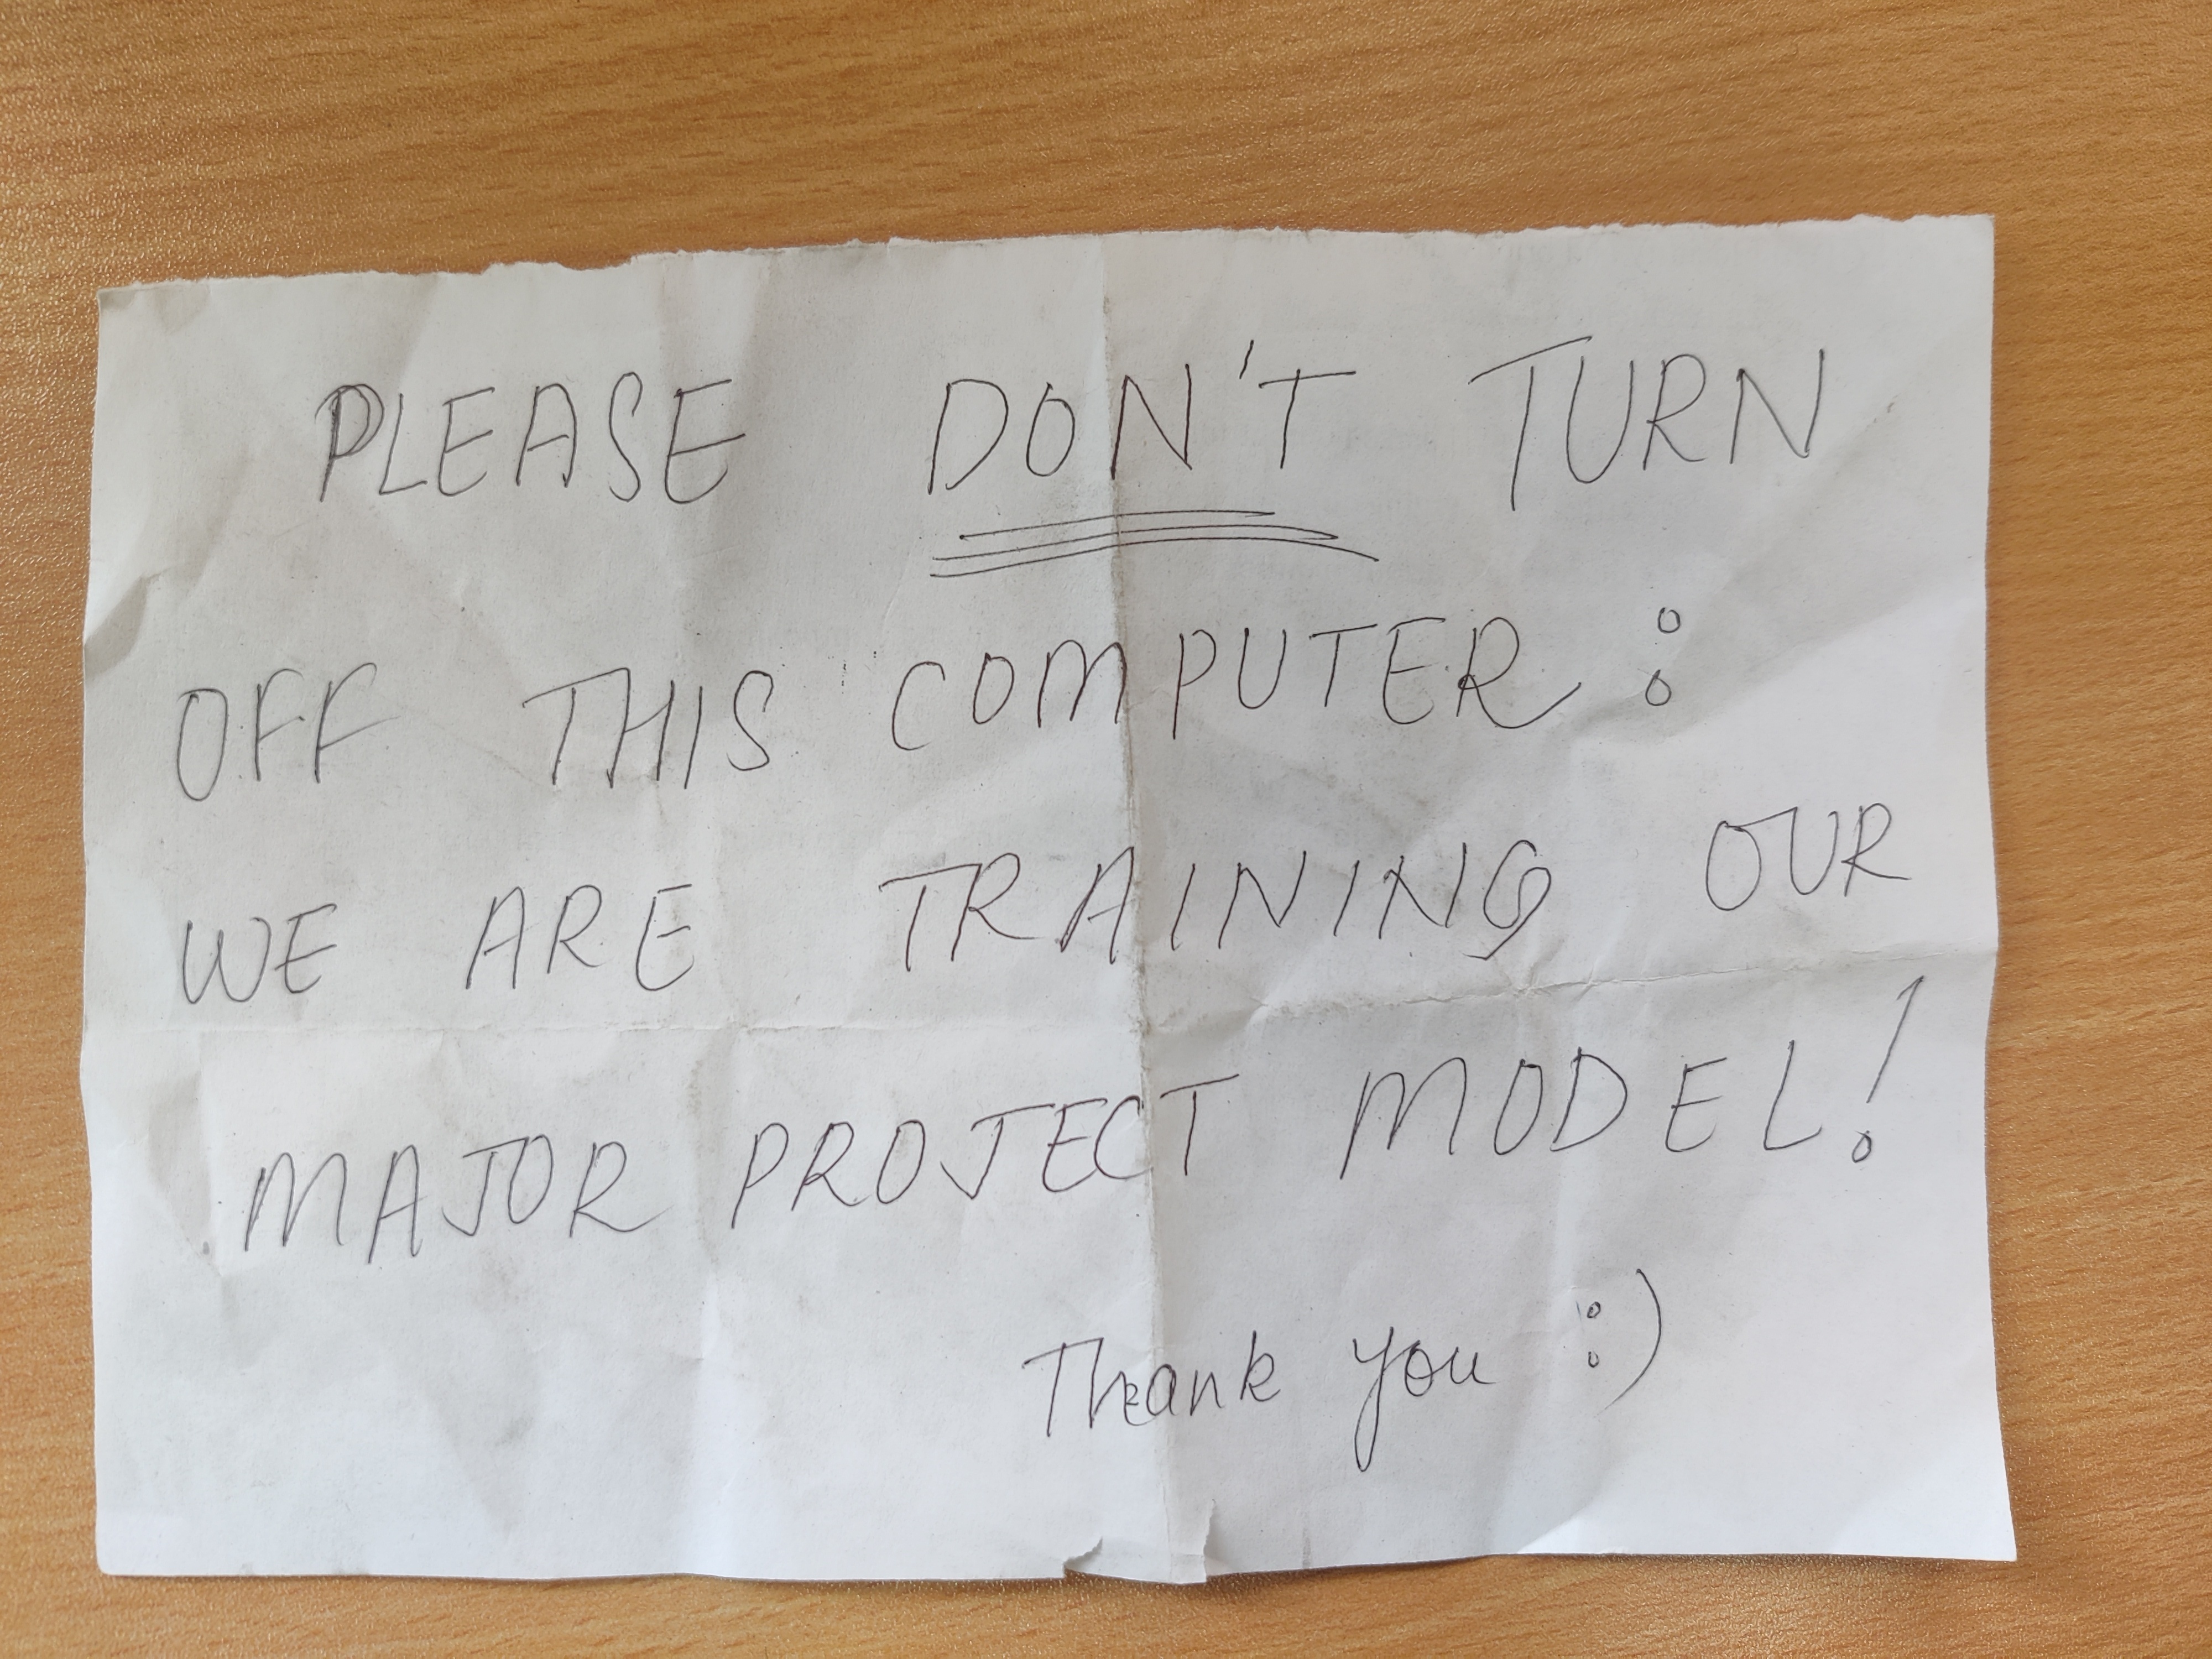 PLEASE DON'T TURN
OFF THIS COMPUTER :
WE ARE TRAINING OUR
MAJOR PROJECT MODEL!
Thank you :)